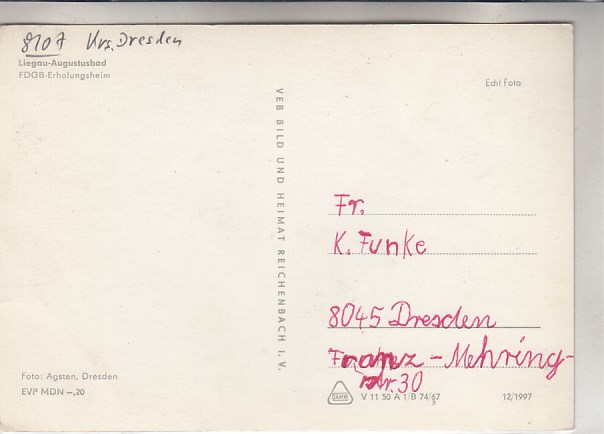 8107 Krs. Dresden
Liegau-Augustusbad
FDGB-Erholungsheim
Echt Foto
VEB BILD UND HEIMAT REICHENBACH I. V.
Fr.
K. Funke
8045 Dresden
Franz-Mehring-
str. 30
Foto: Agsten, Dresden
EVP MDN –,20
DAMW
V 11 50 A 1/B 74/67
12/1997